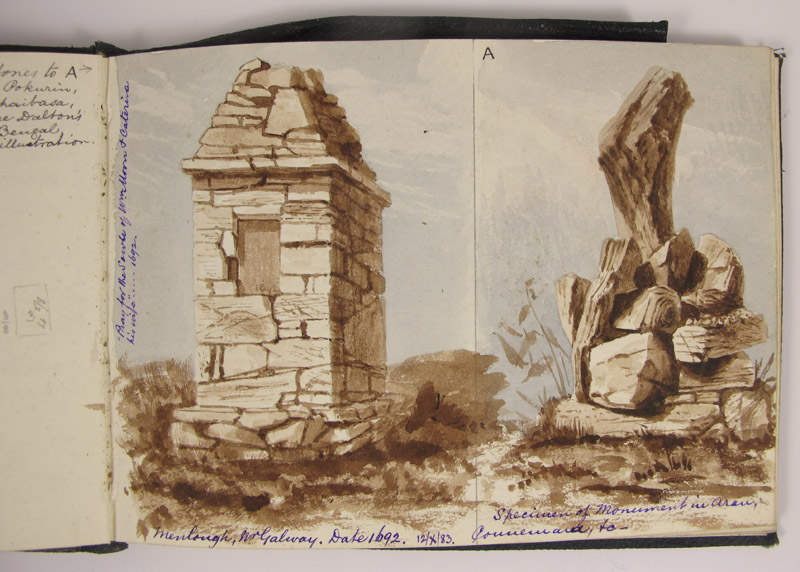 ones to A→
Pokurin,
haibasa,
ee Dalton's
Bengal,
illustration.
"Pray for the Sowle of Wm Morn & Caterine
his wife" .... 1692.
A
Menlough, Nr Galway. Date 1692. 12/X/83.
Specimen of Monument in Aran,
Connemara, &c—